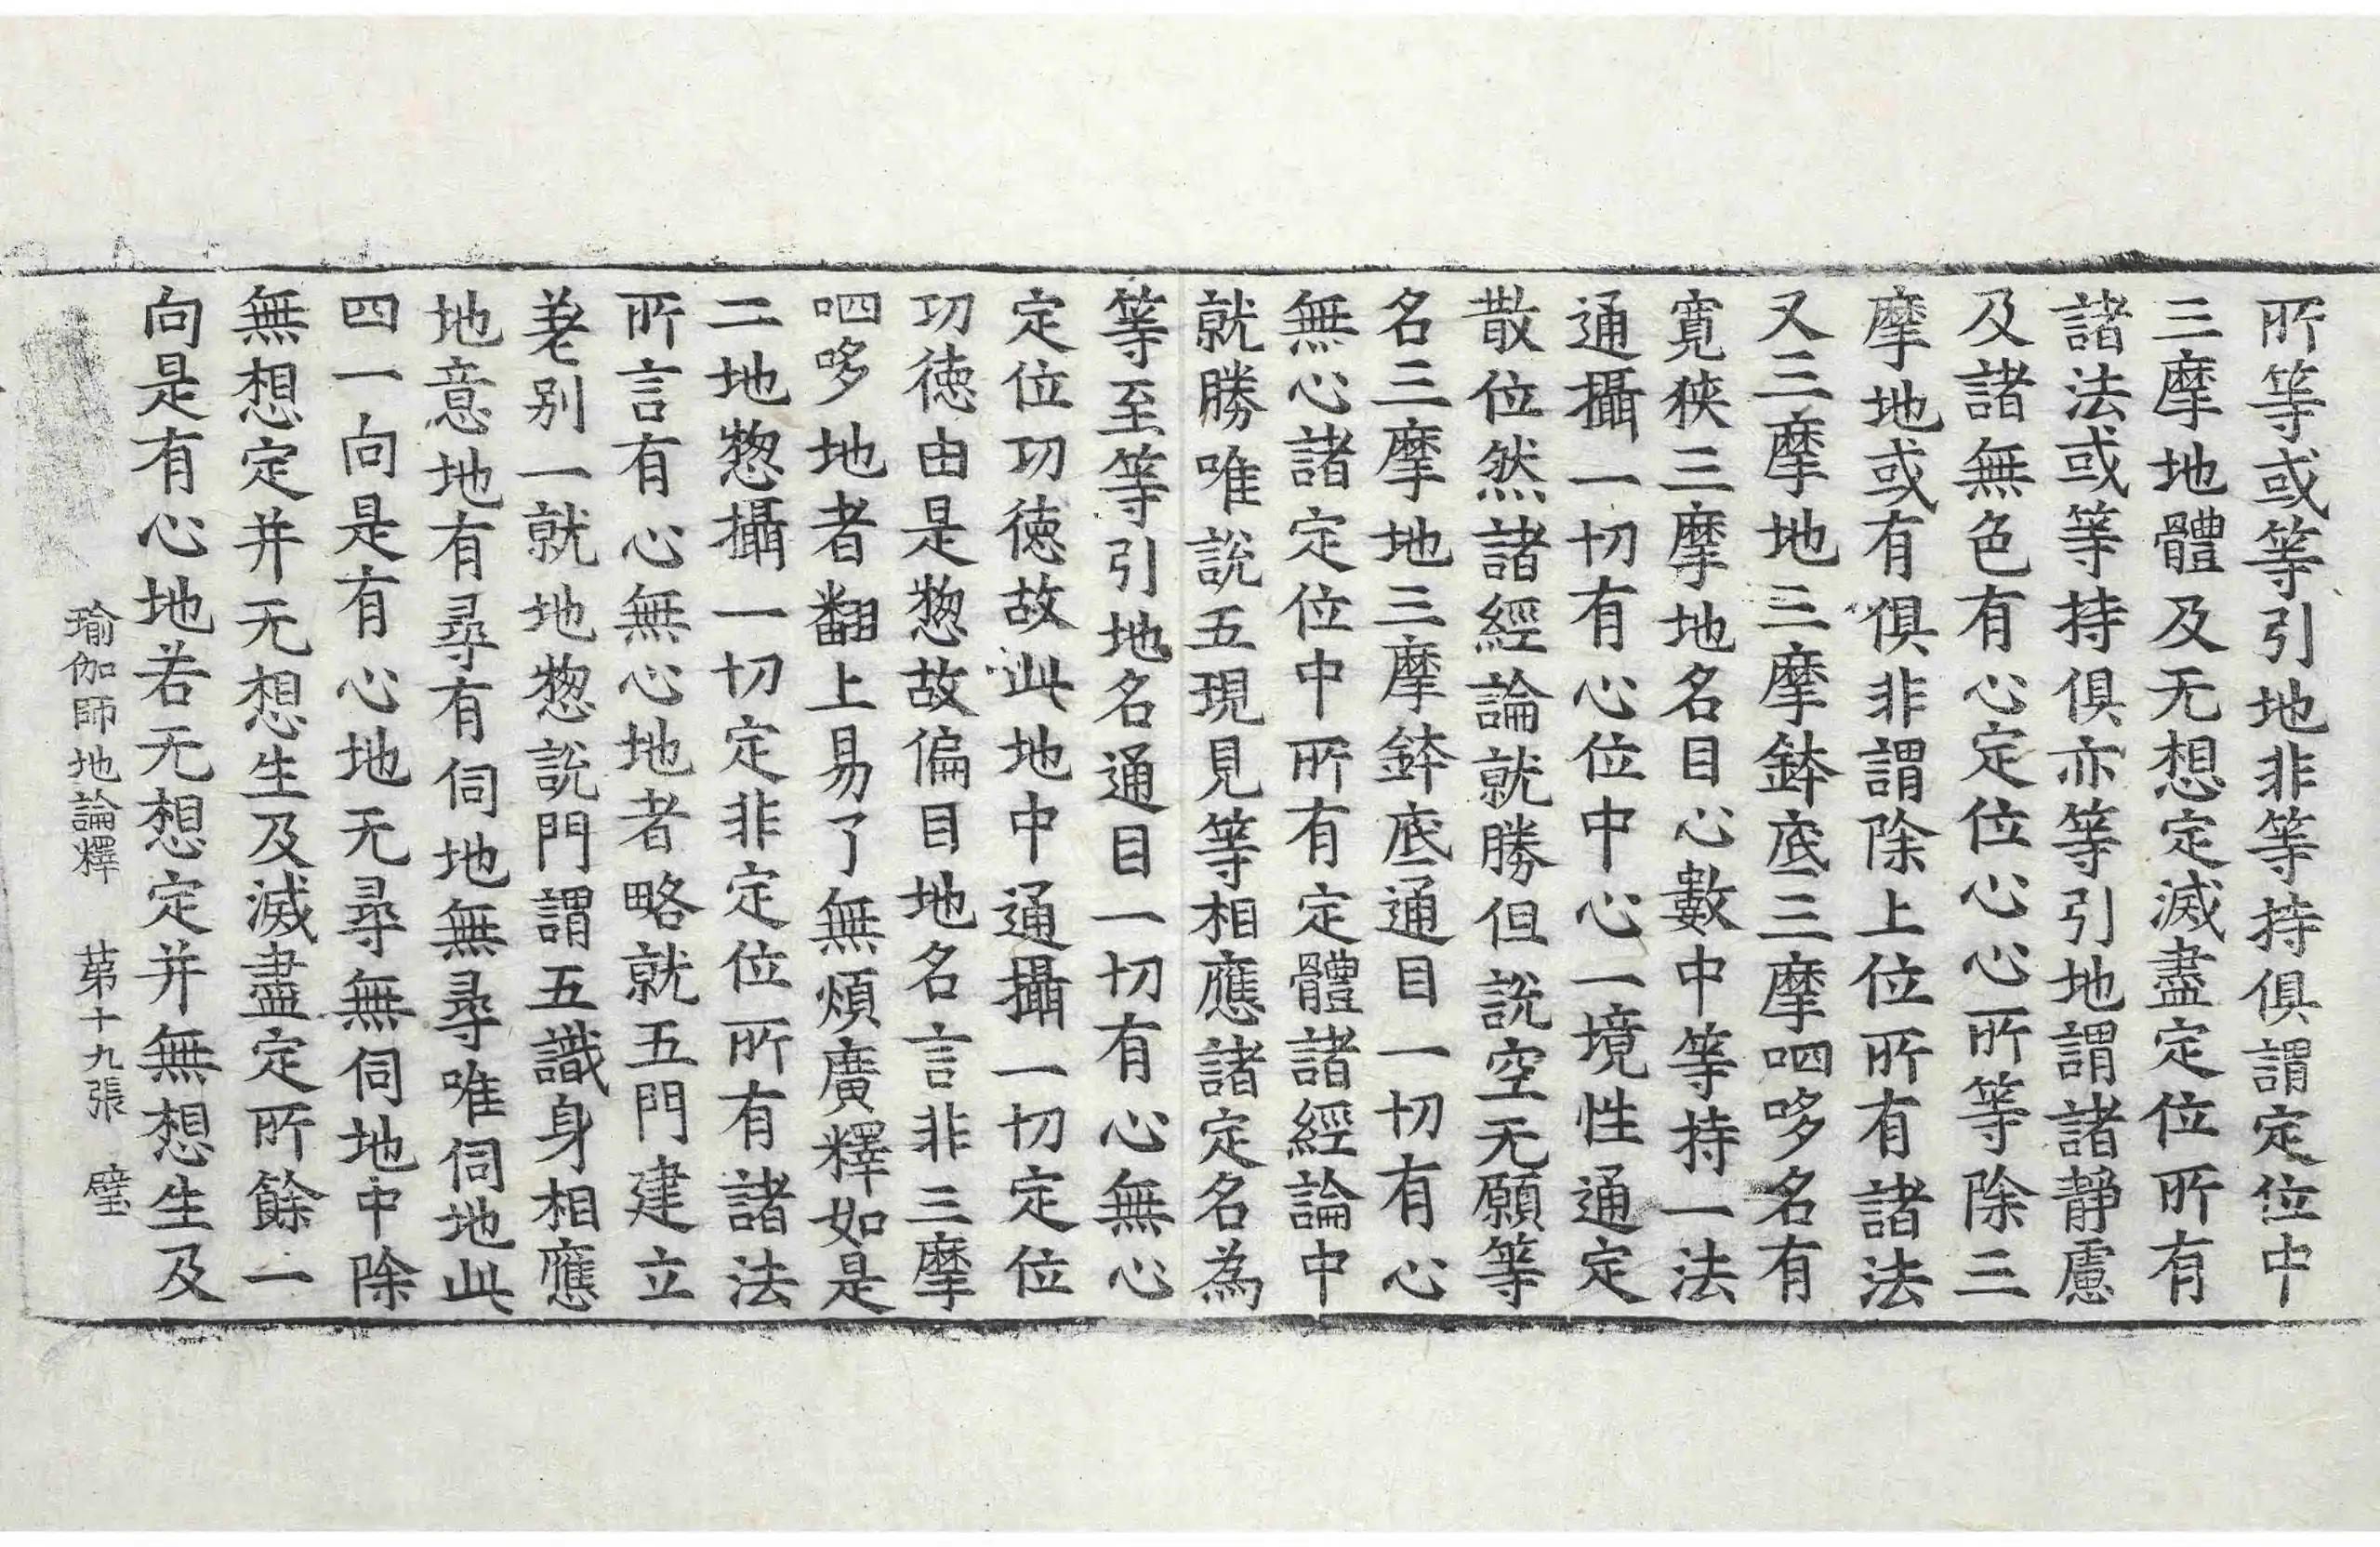 所等或等引地非等持俱謂定位中
三摩地體及无想定滅盡定位所有
諸法或等持俱亦等引地謂諸靜慮
及諸無色有心定位心心所等除三
摩地或有俱非謂除上位所有諸法
又三摩地三摩鉢底三摩呬哆名有
寛狹三摩地名目心數中等持一法
通攝一切有心位中心一境性通定
散位然諸經論就勝但說空无願等
名三摩地三摩鉢底通目一切有心
無心諸定位中所有定體諸經論中
就勝唯說五現見等相應諸定名為
等至等引地名通目一切有心無心
定位功徳故此地中通攝一切定位
功徳由是惣故偏目地名言非三摩
呬哆地者翻上易了無煩廣釋如是
二地惣攝一切定非定位所有諸法
所言有心無心地者略就五門建立
差別一就地惣說門謂五識身相應
地意地有尋有伺地無尋唯伺地此
四一向是有心地无尋無伺地中除
無想定并无想生及滅盡定所餘一
向是有心地若无想定并無想生及
瑜伽師地論釋 苐十九張 璧